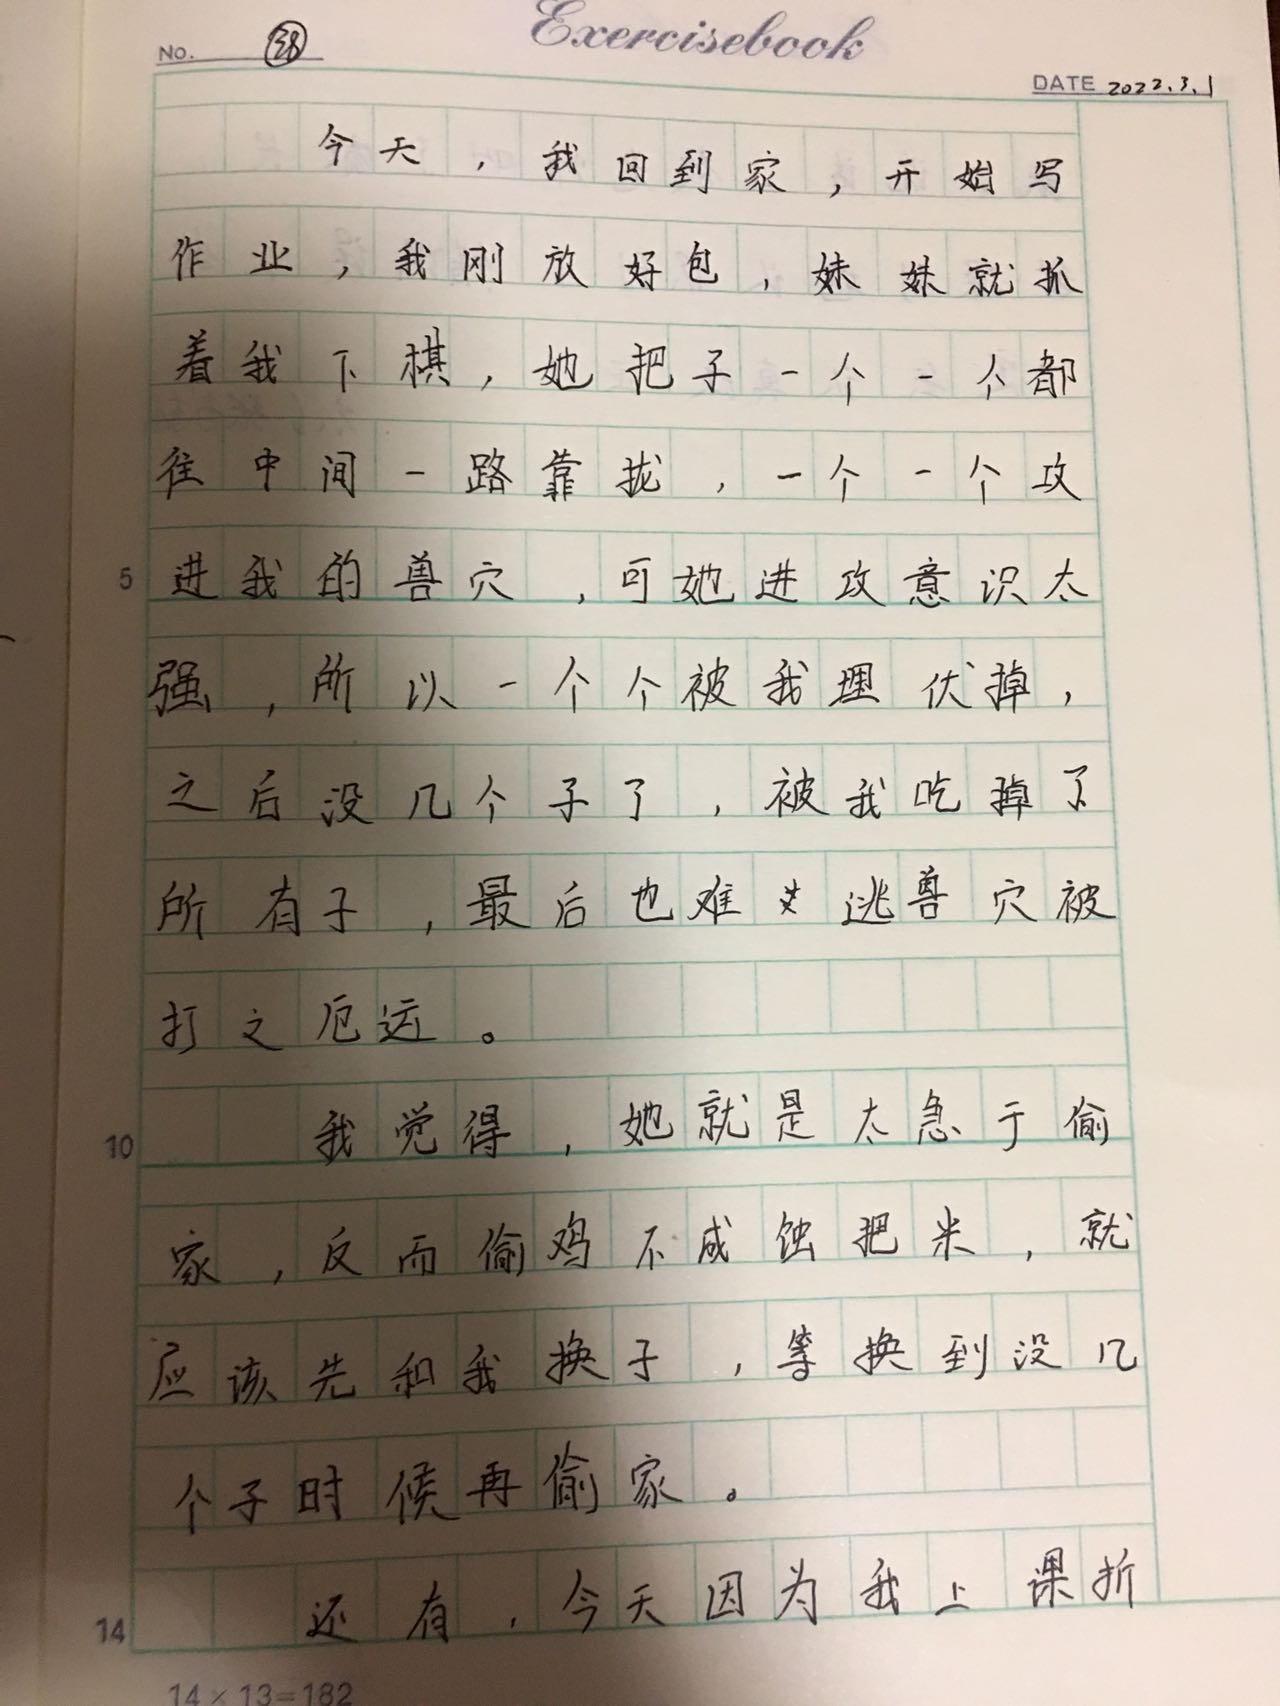 Exercisebook
NO.
DATE 2022.3.1
今天，我回到家，开始写
作业，我刚放好包，妹妹就抓
着我下棋，她把子一个一个都
往中间一路靠拢，一个一个攻
进我的兽穴，可她进攻意识太
5
强，所以一个个被我埋伏掉，
之后没几个子了，被我吃掉了
所有子，最后也难逃兽穴被
打之厄运。
我觉得，她就是太急于偷
10
家，反而偷鸡不成蚀把米，就
应该先和我换子，等换到没几
个子时候再偷家。
还有，今天因为我上课折
14
14×13=182